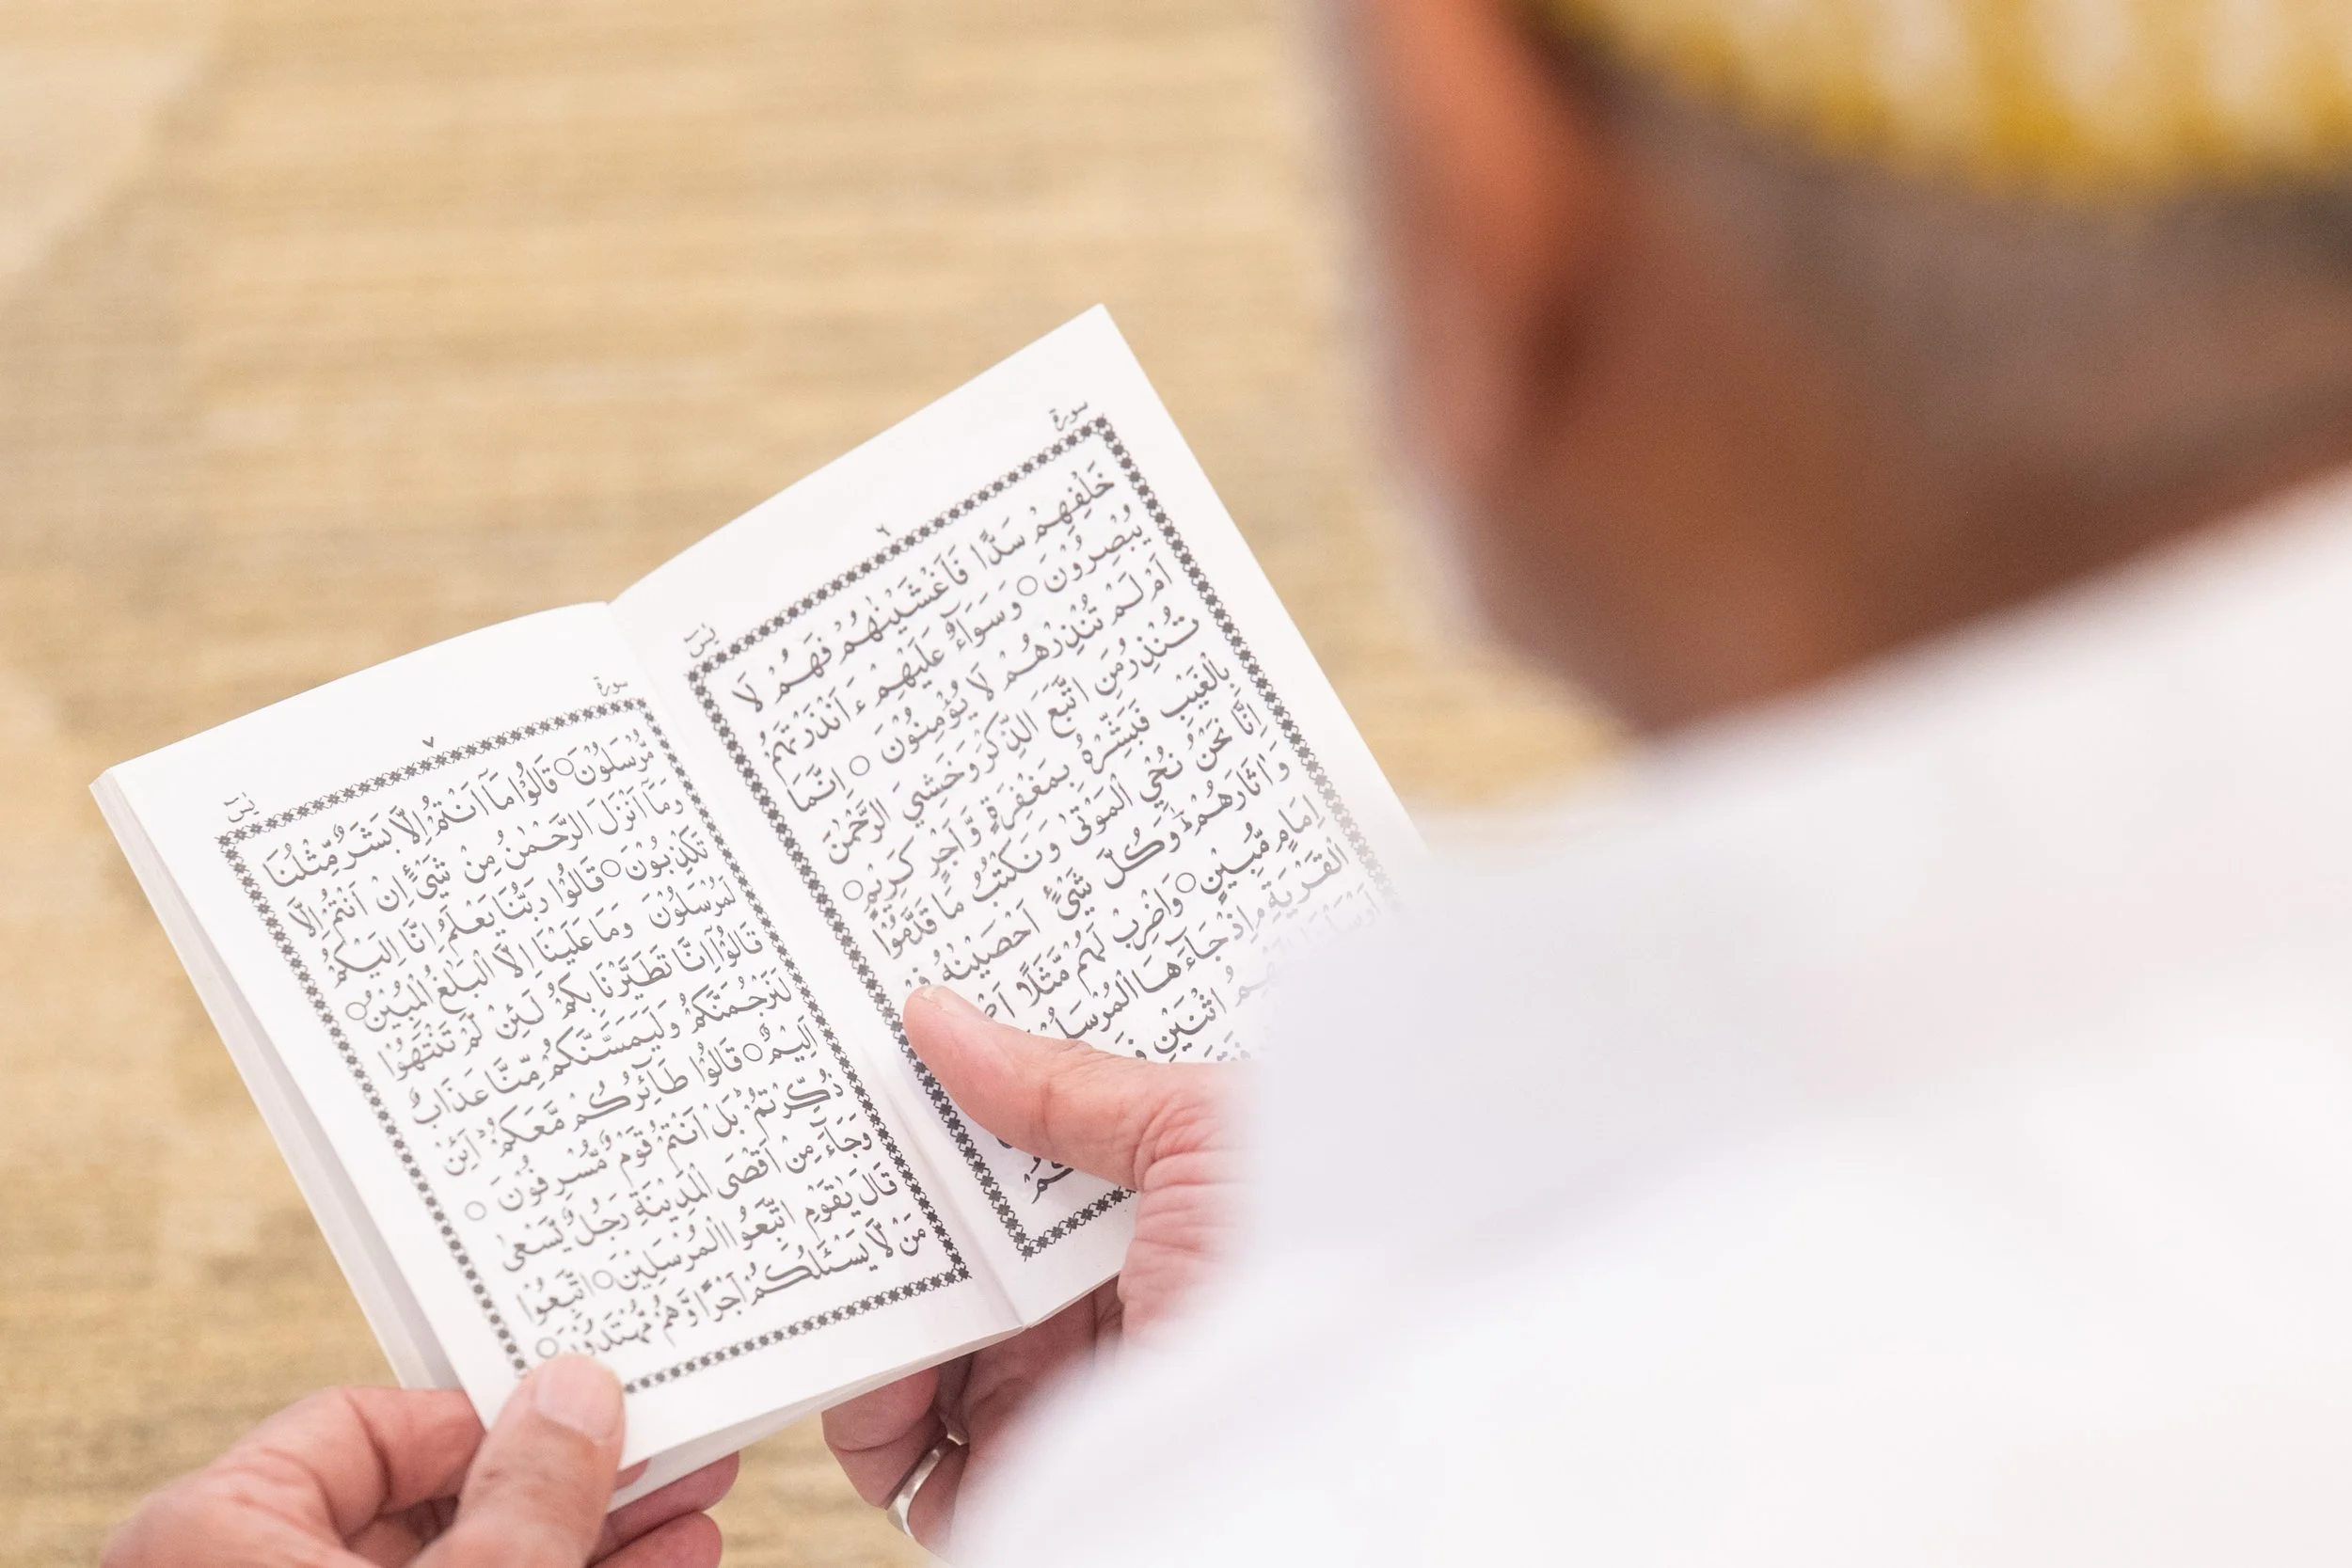 سورة ٦ يٰسٓ
خَلْفِهِمْ سَدًّا فَاَغْشَيْنٰهُمْ فَهُمْ لَا
يُبْصِرُوْنَ ○ وَسَوَآءٌ عَلَيْهِمْ ءَاَنْذَرْتَهُمْ
اَمْ لَمْ تُنْذِرْهُمْ لَا يُؤْمِنُوْنَ ○ اِنَّمَا
تُنْذِرُ مَنِ اتَّبَعَ الذِّكْرَ وَخَشِيَ الرَّحْمٰنَ
بِالْغَيْبِ فَبَشِّرْهُ بِمَغْفِرَةٍ وَّاَجْرٍ كَرِيْمٍ ○
اِنَّا نَحْنُ نُحْيِ الْمَوْتٰى وَنَكْتُبُ مَا قَدَّمُوْا
وَاٰثَارَهُمْ ؕ وَكُلَّ شَيْءٍ اَحْصَيْنٰهُ فِ
اِمَامٍ مُّبِيْنٍ ○ وَاضْرِبْ لَهُمْ مَّثَلًا
الْقَرْيَةِ ۘ اِذْ جَآءَهَا الْمُرْسَلُ
اَرْسَلْنَا اثْنَيْنِ
سورة ٧ يٰسٓ
مُّرْسَلُوْنَ ○ قَالُوْا مَآ اَنْتُمْ اِلَّا بَشَرٌ مِّثْلُنَا
وَمَآ اَنْزَلَ الرَّحْمٰنُ مِنْ شَيْءٍ اِنْ اَنْتُمْ اِلَّا
تَكْذِبُوْنَ ○ قَالُوْا رَبُّنَا يَعْلَمُ اِنَّا اِلَيْكُمْ
لَمُرْسَلُوْنَ وَمَا عَلَيْنَا اِلَّا الْبَلٰغُ الْمُبِيْنُ ○
قَالُوْٓا اِنَّا تَطَيَّرْنَا بِكُمْ لَئِنْ لَّمْ تَنْتَهُوْا
لَنَرْجُمَنَّكُمْ وَلَيَمَسَّنَّكُمْ مِّنَّا عَذَابٌ
اَلِيْمٌ ○ قَالُوْا طَآئِرُكُمْ مَّعَكُمْ ؕ اَئِنْ
ذُكِّرْتُمْ ؕ بَلْ اَنْتُمْ قَوْمٌ مُّسْرِفُوْنَ ○
وَجَآءَ مِنْ اَقْصَى الْمَدِيْنَةِ رَجُلٌ يَّسْعٰى
قَالَ يٰقَوْمِ اتَّبِعُوا الْمُرْسَلِيْنَ ○ اتَّبِعُوْا
مَنْ لَّا يَسْئَلُكُمْ اَجْرًا وَّهُمْ مُّهْتَدُوْنَ ○